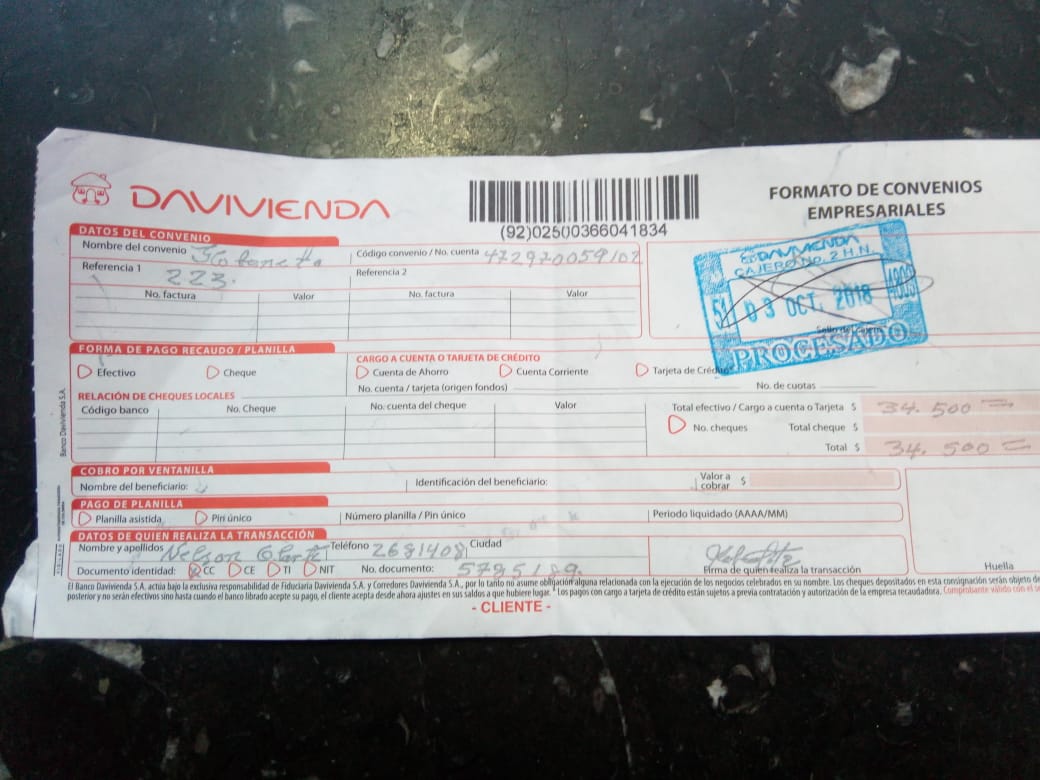 DAVIVIENDA
(92)02500366041834
FORMATO DE CONVENIOS
EMPRESARIALES
DATOS DEL CONVENIO
Nombre del convenio
Código convenio / No. cuenta 472970059102
Referencia 1 223.
Referencia 2
No. factura Valor No. factura Valor
DAVIVIENDA
CAJERO No. 2 H.N.
03 OCT. 2018
Sello del cajero
PROCESADO
FORMA DE PAGO RECAUDO / PLANILLA
Efectivo Cheque
CARGO A CUENTA O TARJETA DE CRÉDITO
Cuenta de Ahorro Cuenta Corriente Tarjeta de Créd
No. cuenta / tarjeta (origen fondos) No. de cuotas
RELACIÓN DE CHEQUES LOCALES
Código banco No. Cheque No. cuenta del cheque Valor
Total efectivo / Cargo a cuenta o Tarjeta $ 34.500=
No. cheques Total cheque $
Total $ 34.500=
COBRO POR VENTANILLA
Nombre del beneficiario: Identificación del beneficiario: Valor a cobrar $
PAGO DE PLANILLA
Planilla asistida Pin único Número planilla / Pin único Periodo liquidado (AAAA/MM)
DATOS DE QUIEN REALIZA LA TRANSACCIÓN
Nombre y apellidos Nelson Teléfono 2681408 Ciudad
Documento identidad: CC CE TI NIT No. documento: 5795189.
Firma de quien realiza la transacción
Huella
El Banco Davivienda S.A. actúa bajo la exclusiva responsabilidad de Fiduciaria Davivienda S.A. y Corredores Davivienda S.A., por lo tanto no asume obligación alguna relacionada con la ejecución de los negocios celebrados en su nombre. Los cheques depositados en esta consignación serán objeto de
posterior y no serán efectivos sino hasta cuando el banco librado acepte su pago, el cliente acepta desde ahora ajustes en sus saldos a que hubiere lugar. Los pagos con cargo a tarjeta de crédito están sujetos a previa contratación y autorización de la empresa recaudadora. Comprobante válido con el se
- CLIENTE -
Banco Davivienda S.A.